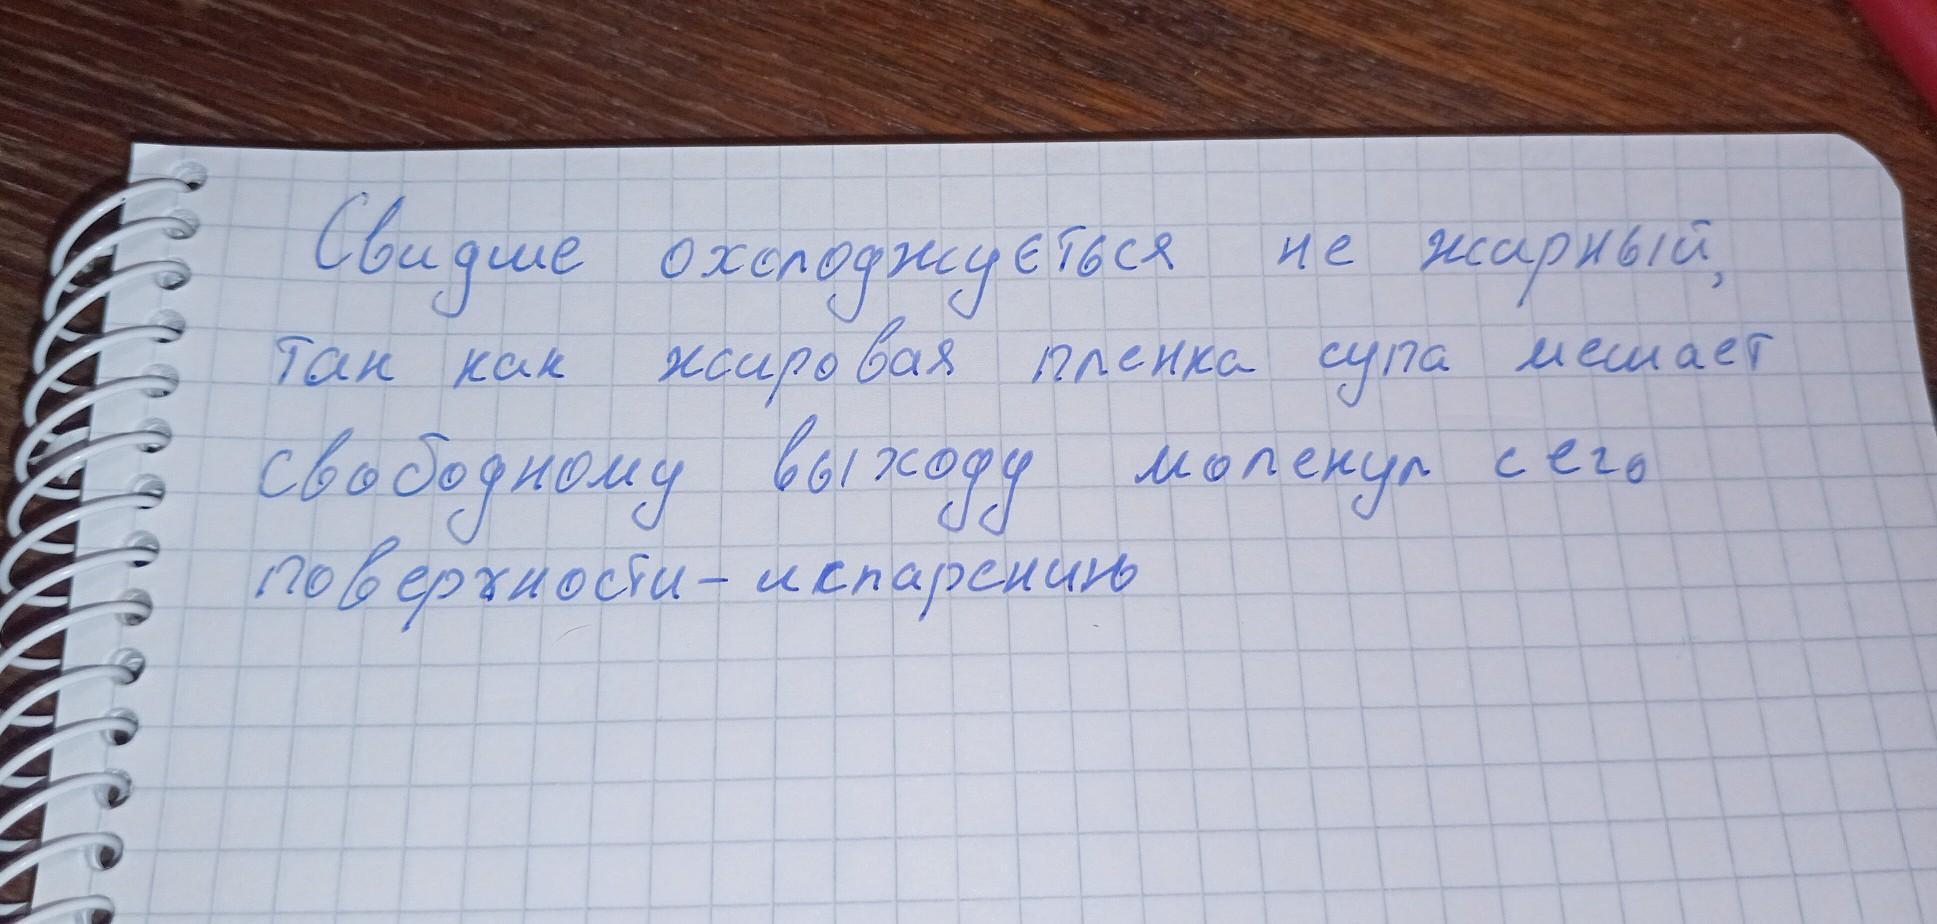 Свидше охолоджується не жирный,
так как жировая пленка супа мешает
свободному выходу молекул с его
поверхности - испарению